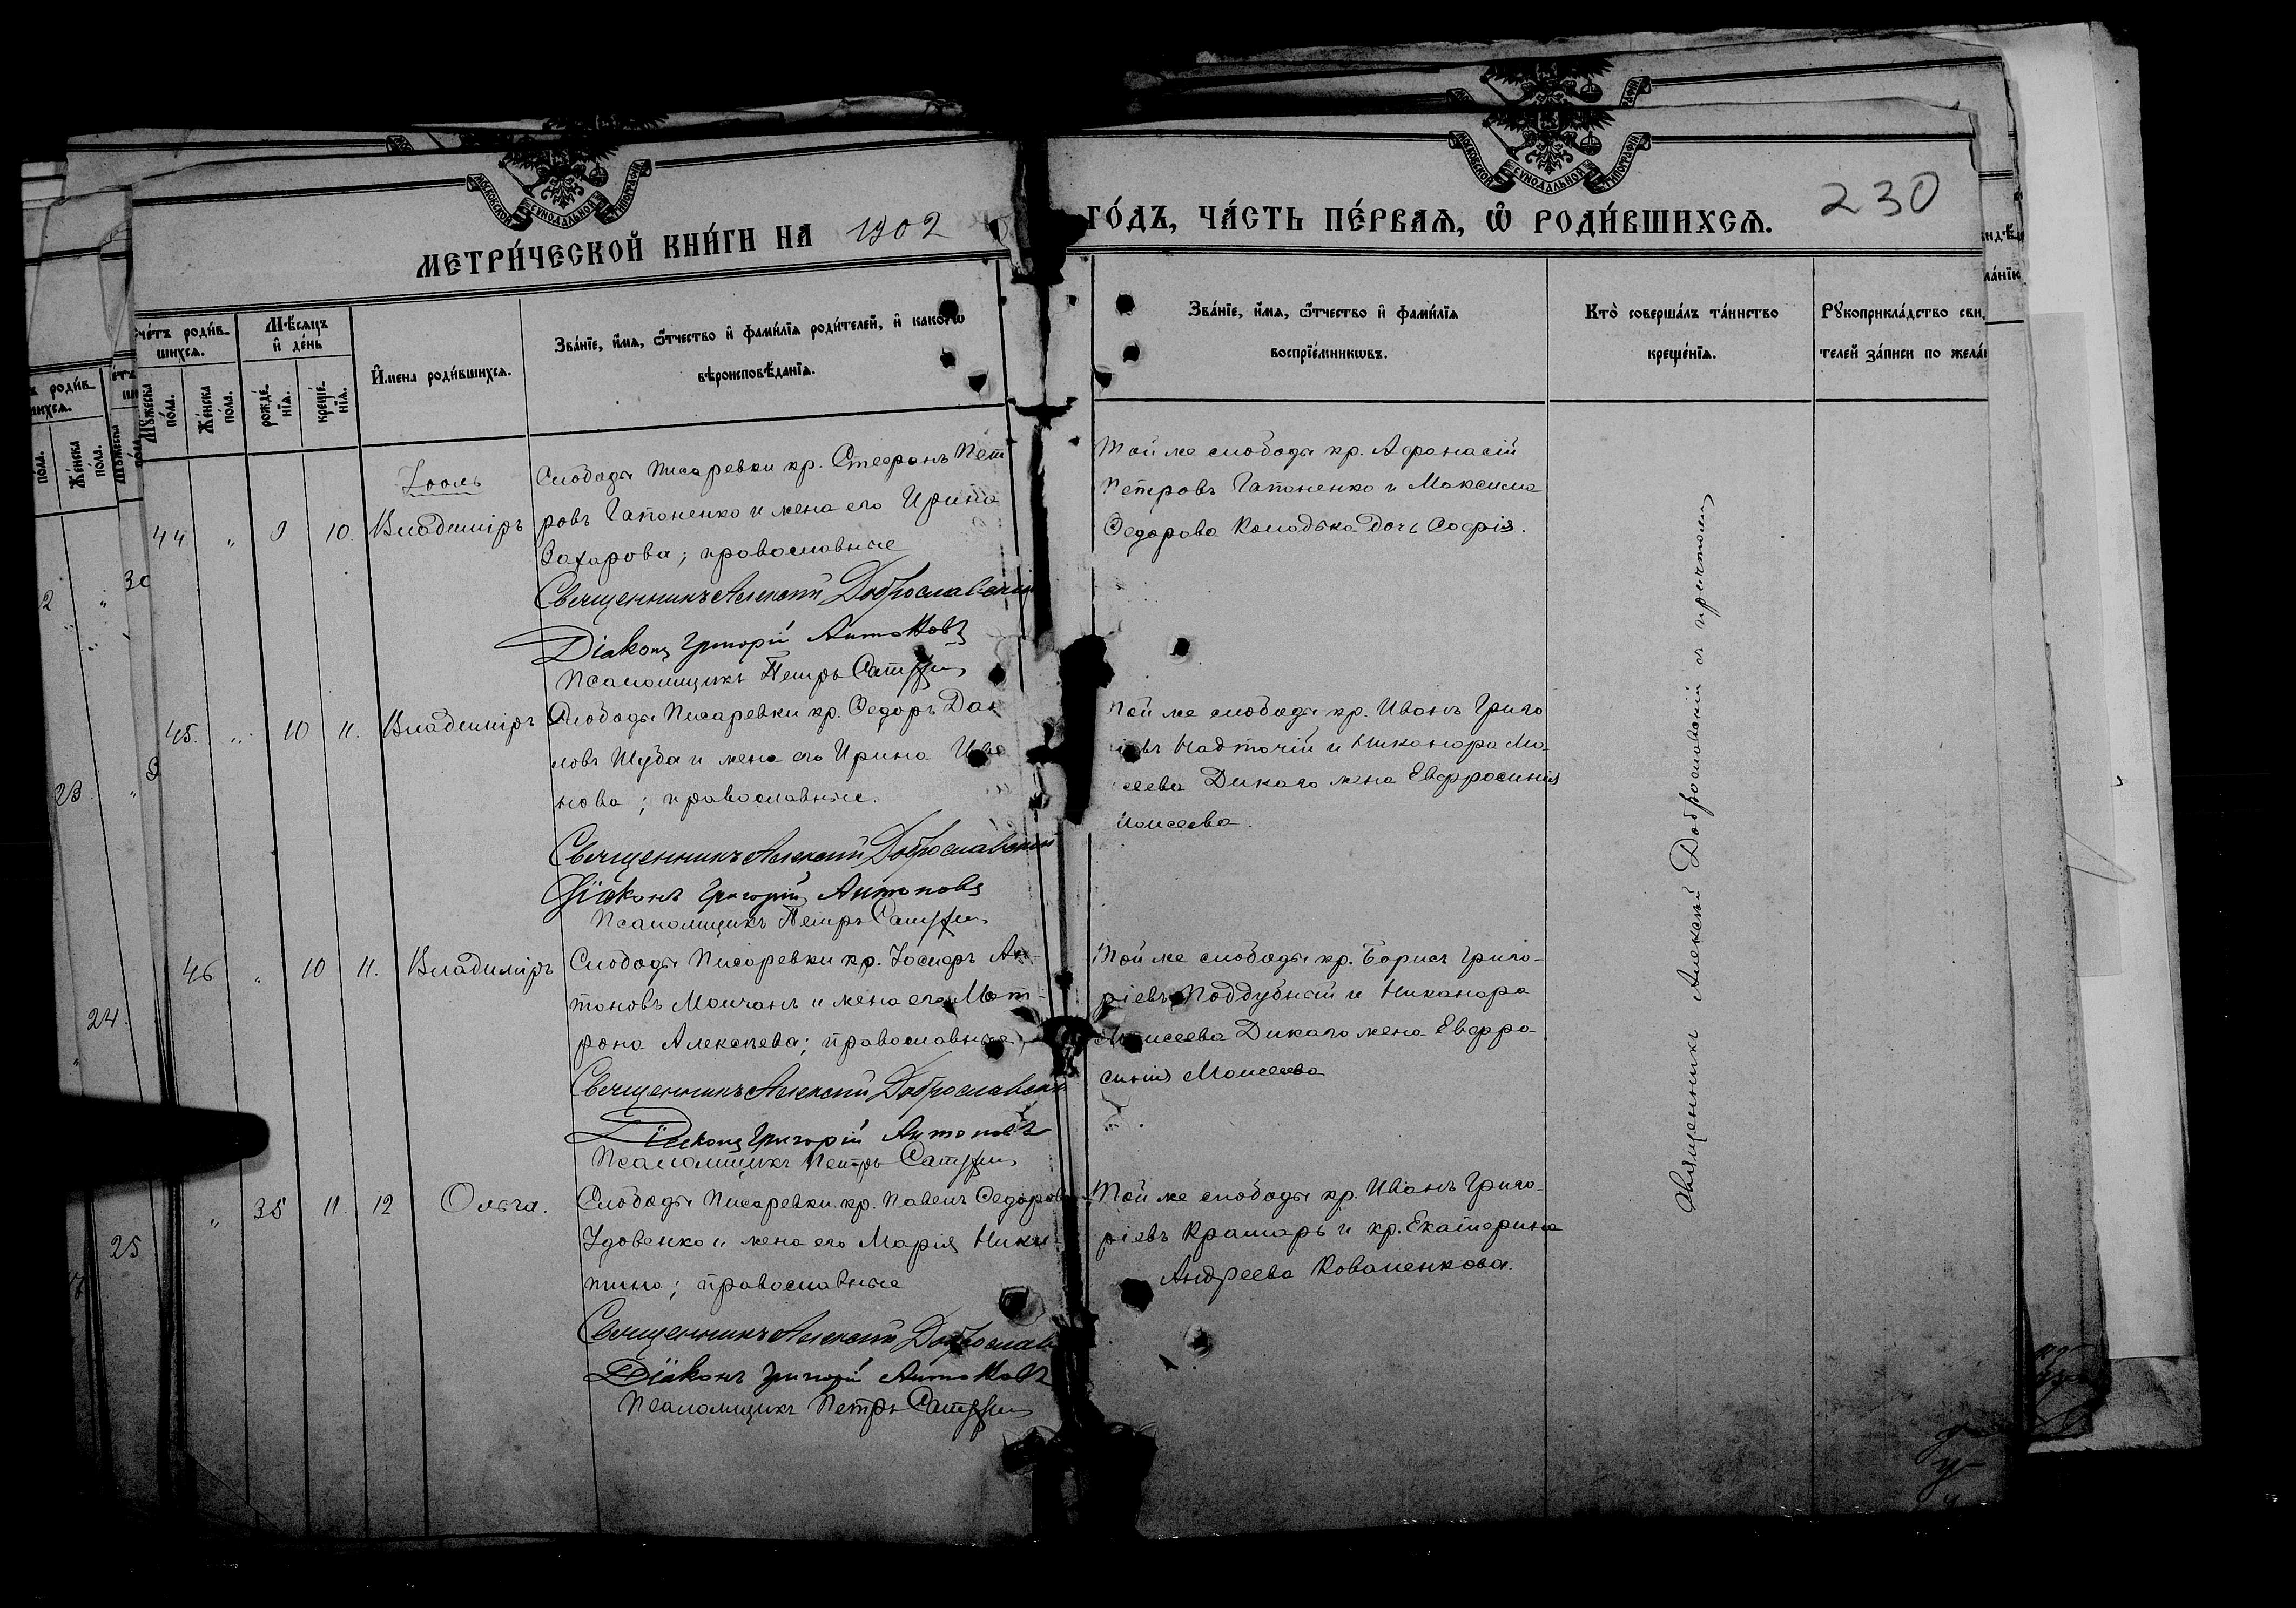 МОСКОВСКОЙ СУНОДАЛЬНОЙ ТИПОГРАФІИ
МОСКОВСКОЙ СУНОДАЛЬНОЙ ТИПОГРАФІИ
МЕТРИ́ЧЕСКОЙ КНИ́ГИ НА 1902
ГО́ДЪ, ЧА́СТЬ ПЕ́РВАѦ, Ѡ РОДИ́ВШИХСѦ.
230
Сче́тъ роди́в-
шихсѧ.
Мꙋ́жеска
по́ла.
Же́нска
по́ла.
Мѣ́сѧцъ
и҆ де́нь
рожде́-
нїѧ.
креще́-
нїѧ.
И҆мена роди́вшихсѧ.
Зва́нїе, и҆́мѧ, ѻ҆́тчество и҆ фами́лїѧ роди́телей, и҆ како́гѡ
вѣроисповѣ́данїѧ.
Зва́нїе, и҆́мѧ, ѻ҆́тчество и҆ фами́лїѧ
воспрїе́мникѡвъ.
Кто̀ соверша́лъ та́инство
креще́нїѧ.
Рꙋкоприкла́дство сви
телей за́писи по жела́
Іюль
44 " 9 10. Владиміръ
Слободы Писаревки кр. Стефанъ Пет
ровъ Гапоненко и жена его Ирина
Захарова; православные
Священникъ Алексій Доброславскій
Діаконъ Григорій Антоновъ
Псаломщикъ Петръ
Той же слободы кр. Афанасій
Петровъ Гапоненко и Максима
Федорова Колодька дочь Софія.
45. " 10 11. Владиміръ
Слободы Писаревки кр. Федоръ Да
ловъ Шуба и жена его Ирина Ива
нова; православные.
Священникъ Алексій Доброславскій
Діаконъ Григорій Антоновъ
Псаломщикъ Петръ
Той же слободы кр. Иванъ Григо
евъ Надточій и Никанора Мо-
сеева Дикаго жена Евфросинія
Моисеева.
46 " 10 11. Владиміръ
Слободы Писаревки кр. Іосифъ Ан-
тоновъ Молчанъ и жена его Мат-
рона Алексеева; православные
Священникъ Алексій Доброславскі
Діаконъ Григорій Антоновъ
Псаломщикъ Петръ
Той же слободы кр. Борисъ Григо-
ріевъ Поддубный и Никанора
Моисеева Дикаго жена Евфро-
синія Моисеева
" 35 11. 12 Ольга.
Слободы Писаревки кр. Павелъ Федоровъ
Удовенко и жена его Марія Ники-
тина; православные
Священникъ Алексій Доброслав
Діаконъ Григорій Антоновъ
Псаломщикъ Петръ
Той же слободы кр. Иванъ Григо-
ріевъ Крамарь и кр. Екатерина
Андреева Коваленкова.
Священникъ Алексѣй Доброславскій съ причтомъ
2
23.
24.
25